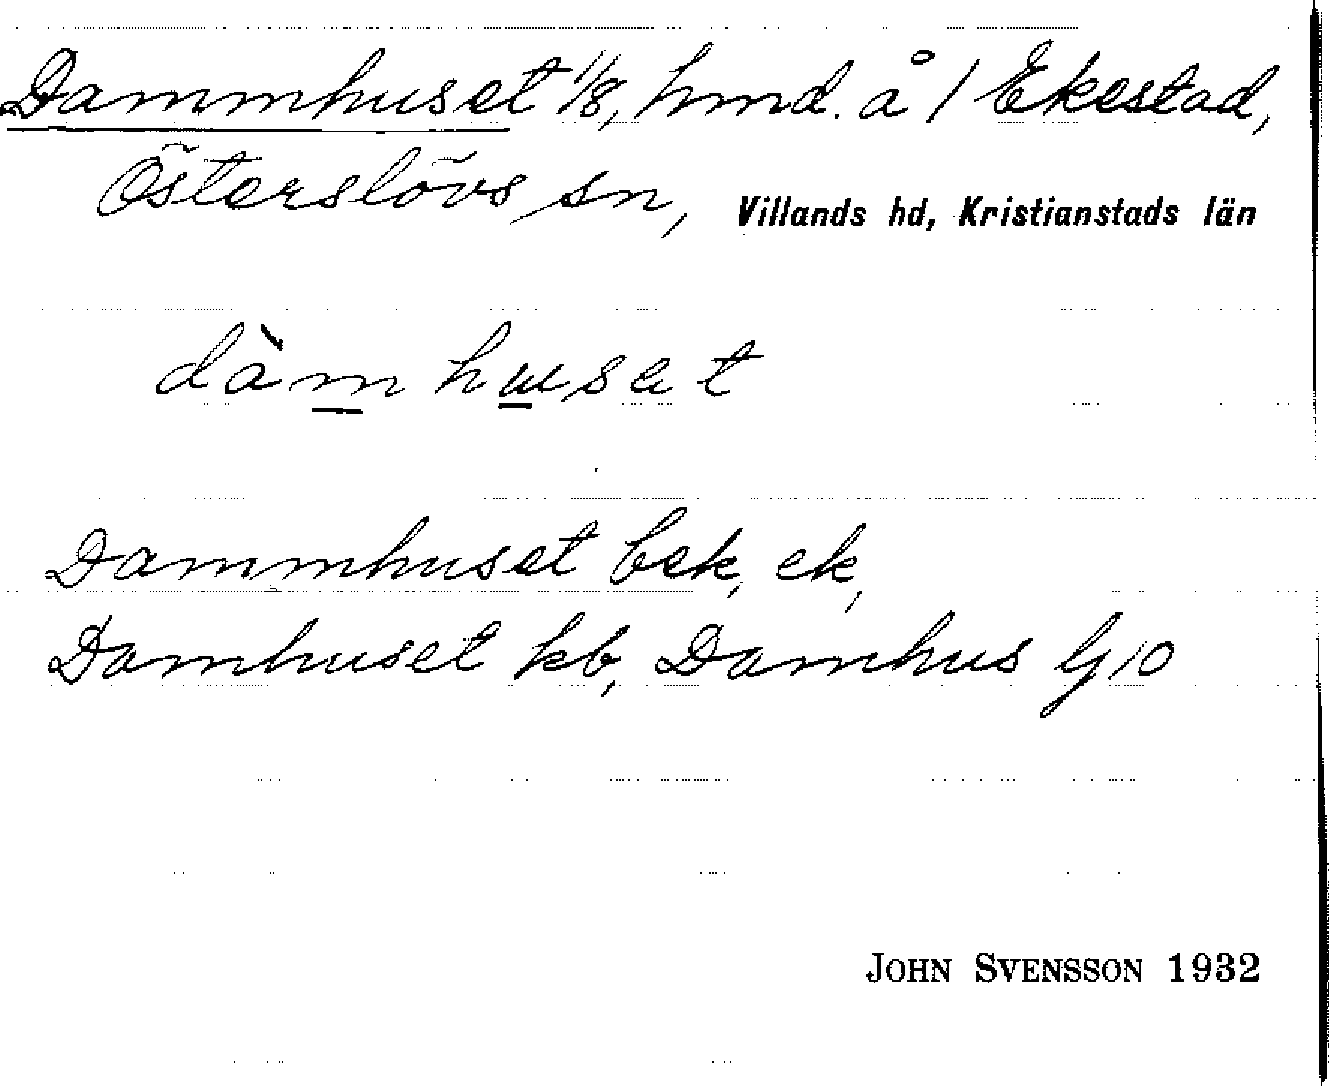 Dammhuset 1/8, hmd. å 1 Ekestad,
Österslövs sn, Villands hd, Kristianstads län
dàm huset
Dammhuset bek, ek,
Damhuset kb, Damhus G 10
JOHN SVENSSON 1932